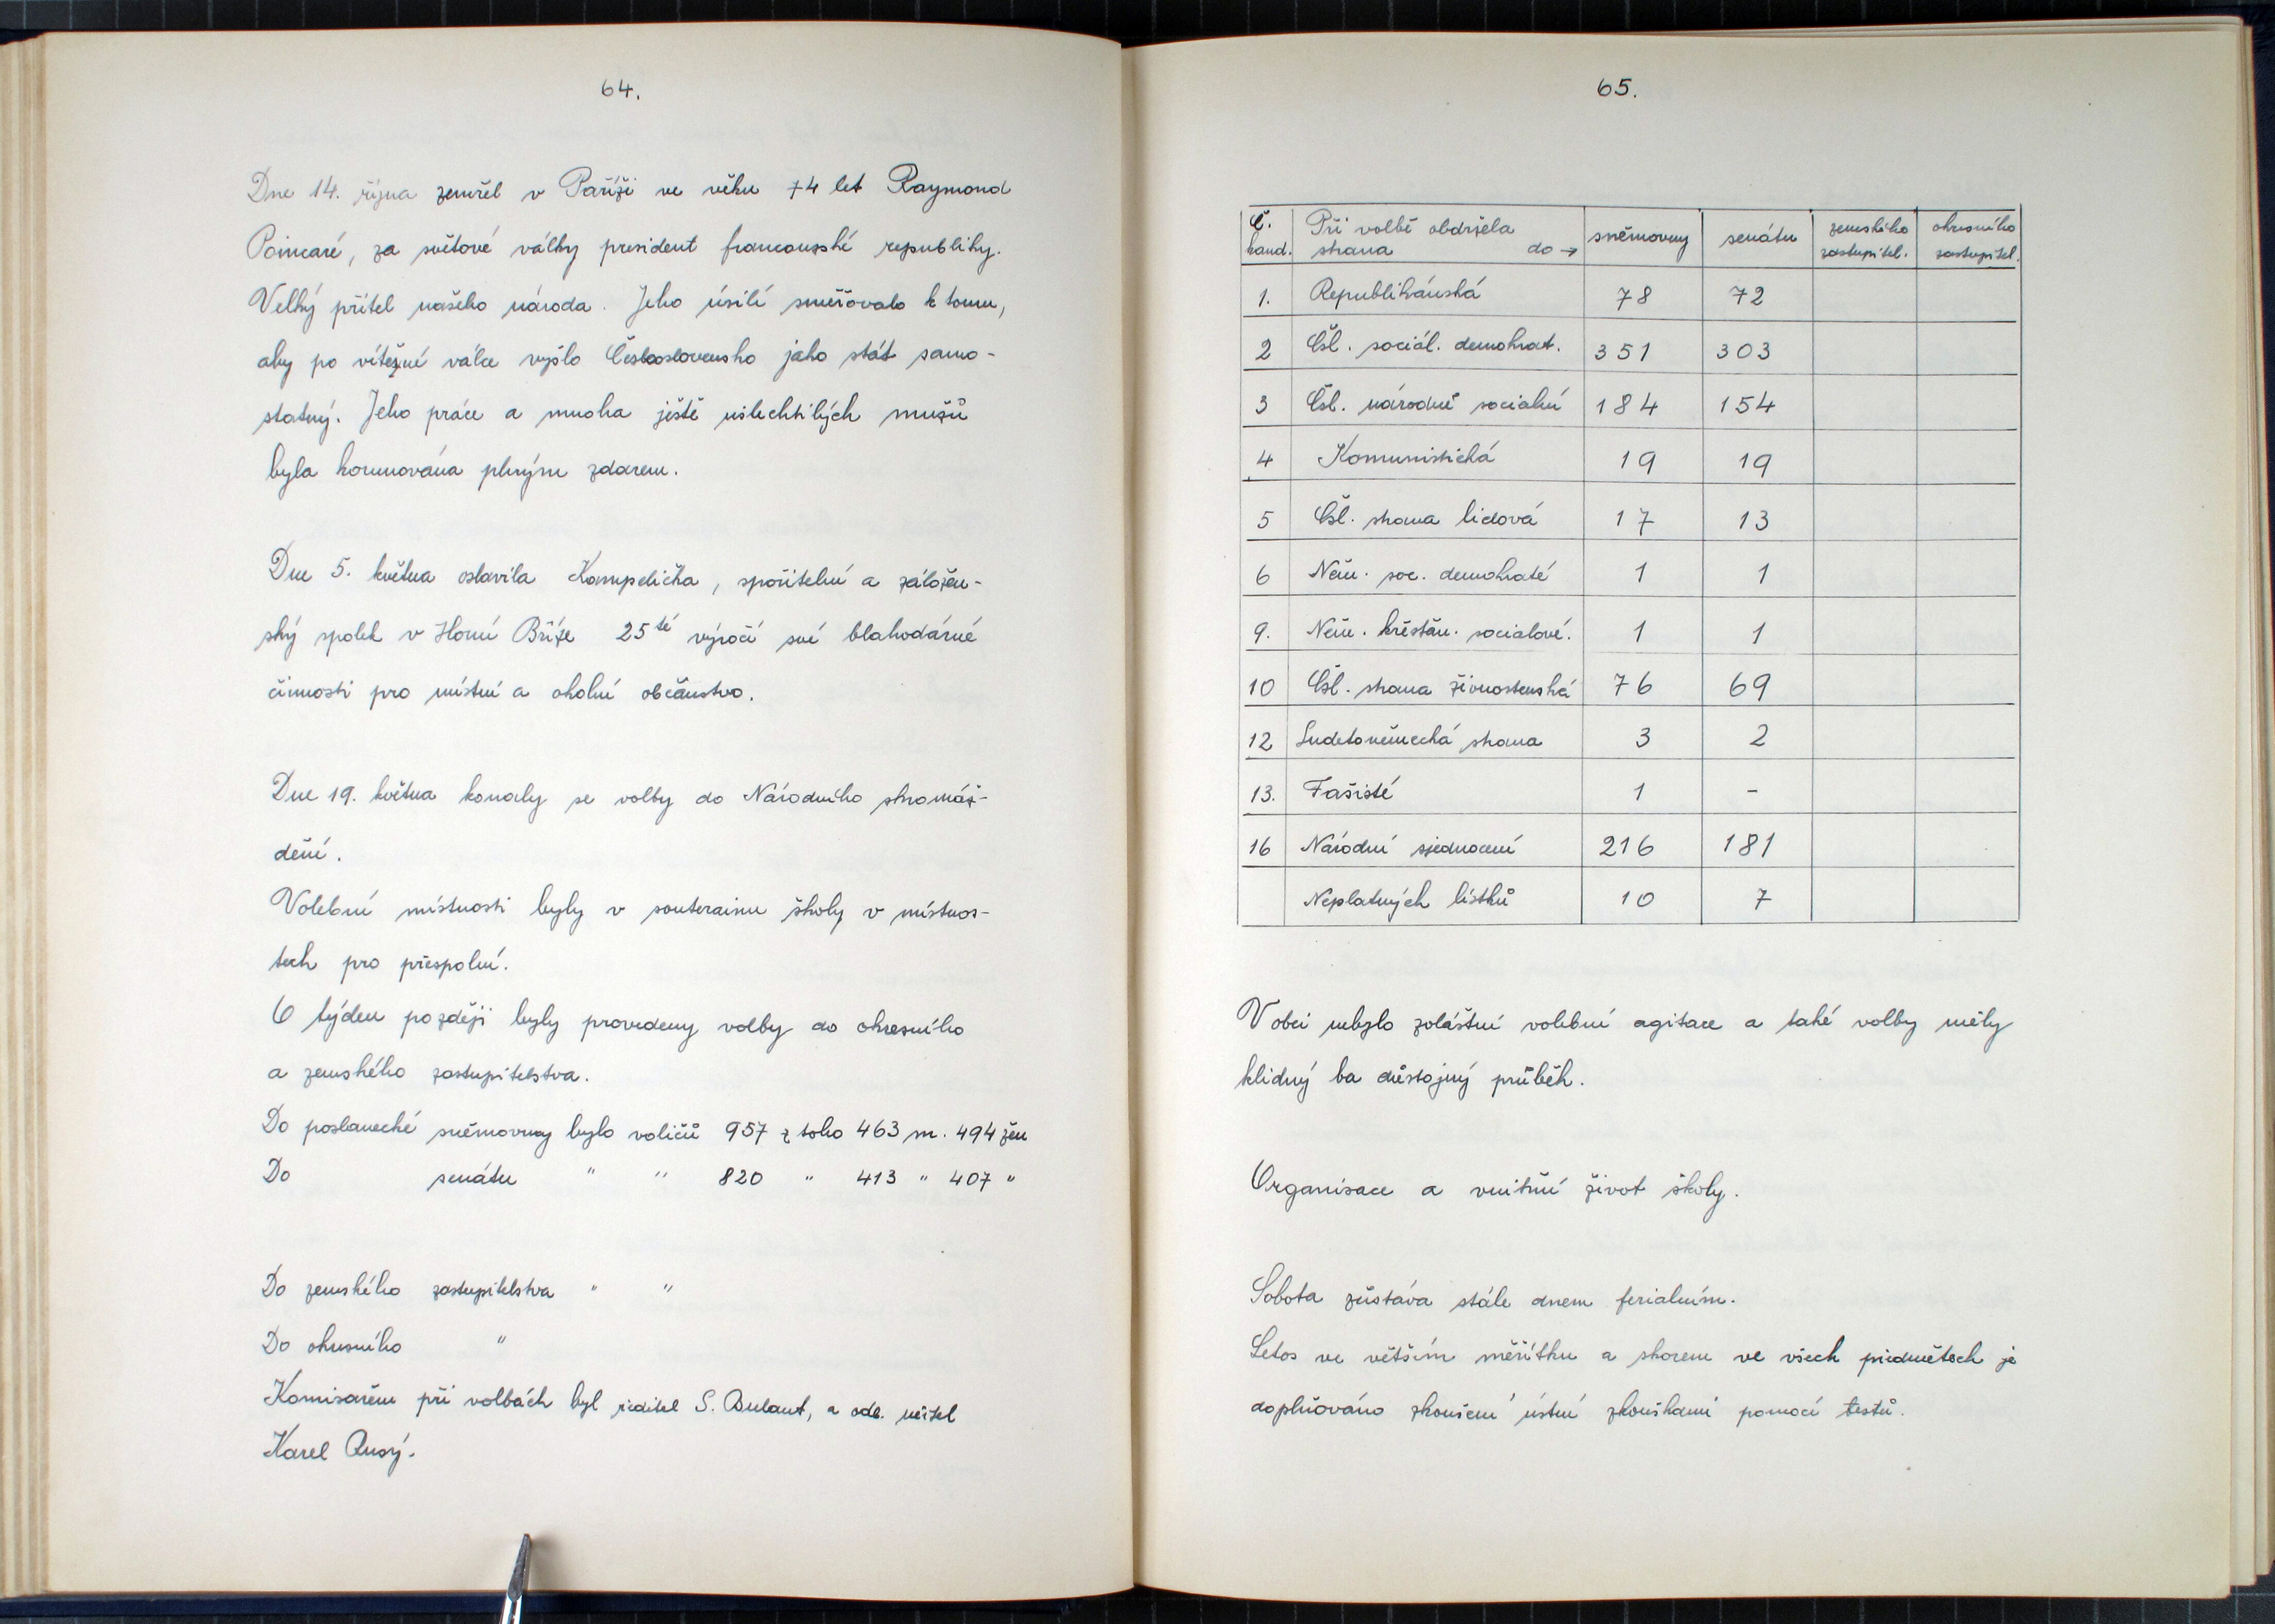 64.
Dne 14. října zemřel v Paříži ve věku 74 let Raymond
Poincaré, za světové války president francouzské republiky.
Velký přítel našeho národa. Jeho úsilí směřovalo k tomu,
aby po vítězné válce vyšlo Československo jako stát samo-
statný. Jeho práce a mnoha ještě ušlechtilých mužů
byla korunována plným zdarem.
Dne 5. května oslavila Kampelička, spořitelní a záložen-
ský spolek v Horní Bříze 25té výročí své blahodárné
činnosti pro místní a okolní občanstvo.
Dne 19. května konaly se volby do Národního shromáž-
dění.
Volební místnosti byly v souterainu školy v místnos-
tech pro přespolní.
O týden později byly provedeny volby do okresního
a zemského zastupitelstva.
Do poslanecké sněmovny bylo voličů 957 z toho 463 m. 494 žen
Do senátu " " 820 " 413 " 407 "
Do zemského zastupitelstva " "
Do okresního "
Komisařem při volbách byl ředitel S. , a odb. učitel
Karel
65.
Č. kand. Při volbě obdržela strana do → sněmovny senátu zemského zastupitel. okresního zastupitel.
1. Republikánská 78 72
2 Čsl. sociál. demokrat. 351 303
3 Čsl. národně socialní 184 154
4 Komunistická 19 19
5 Čsl. strana lidová 17 13
6 Něm. soc. demokraté 1 1
9. Něm. křesťan. socialové. 1 1
10 Čsl. strana živnostenská 76 69
12 Sudetoněmecká strana 3 2
13. Fašisté 1 -
16 Národní sjednocení 216 181
Neplatných lístků 10 7
V obci nebylo zvláštní volební agitace a také volby měly
klidný ba důstojný průběh.
Organisace a vnitřní život školy.
Sobota zůstává stále dnem ferialním.
Letos ve větším měřítku a skorem ve všech předmětech je
doplňováno zkoušení ústní zkouškami pomocí testů.